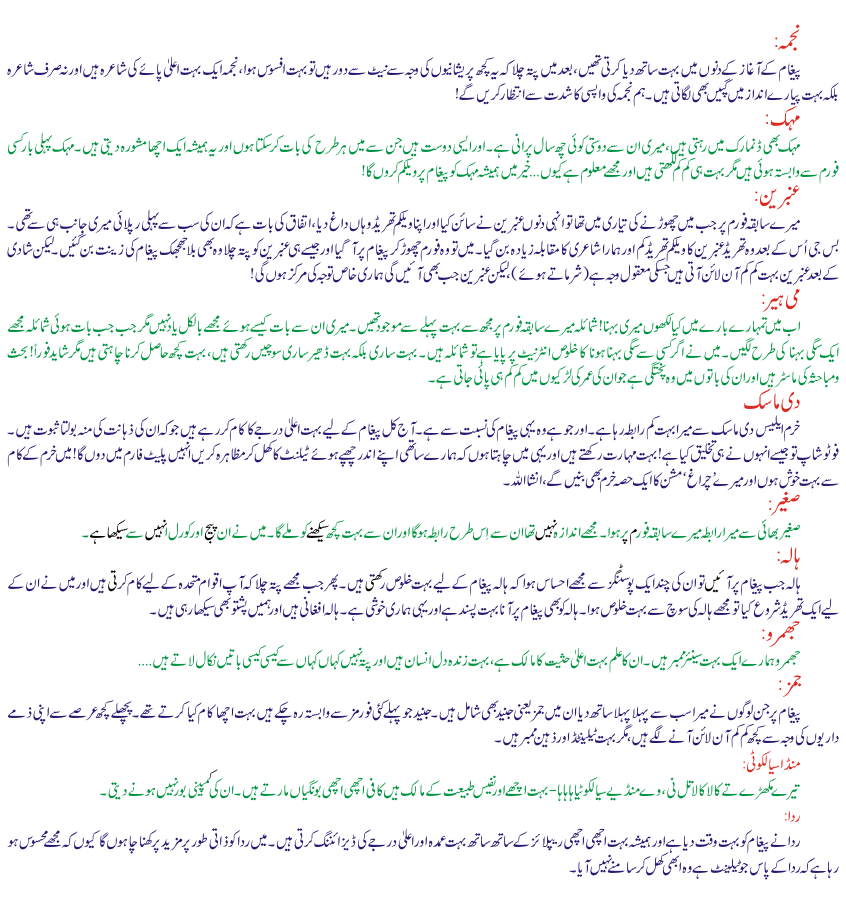 نجمہ:
پیغام کے آغاز کے دنوں میں بہت ساتھ دیا کرتی تھیں، بعد میں پتہ چلا کہ یہ کچھ پریشانیوں کی وجہ سے نیٹ سے دور ہیں تو بہت افسوس ہوا، نجمہ ایک بہت اعلیٰ پائے کی شاعرہ ہیں اور نہ صرف شاعرہ
بلکہ بہت پیارے انداز میں گپیں بھی لگاتی ہیں۔ ہم نجمہ کی واپسی کا شدت سے انتظار کریں گے!
مہک:
مہک بھی ڈنمارک میں رہتی ہیں، میری ان سے دوستی کوئی چھ سال پرانی ہے۔ اور ایسی دوست ہیں جن سے میں ہر طرح کی بات کر سکتا ہوں اور یہ ہمیشہ ایک اچھا مشورہ دیتی ہیں۔ مہک پہلی بار کسی
فورم سے وابستہ ہوئی ہیں مگر بہت ہی کم کم لکھتی ہیں اور مجھے معلوم ہے کیوں... خیر میں ہمیشہ مہک کو پیغام پر ویلکم کروں گا!
عنبرین:
میرے سابقہ فورم پر جب میں چھوڑنے کی تیاری میں تھا تو انہی دنوں عنبرین نے سائن کیا اور اپنا ویلکم تھریڈ وہاں داغ دیا، اتفاق کی بات ہے کہ ان کی سب سے پہلی رپلائی میری جانب ہی سے تھی۔
بس جی اُس کے بعد وہ تھریڈ عنبرین کا ویلکم تھریڈ کم اور ہمارا شاعری کا مقابلہ زیادہ بن گیا۔ میں تو وہ فورم چھوڑ کر پیغام پر آ گیا اور جیسے ہی عنبرین کو پتہ چلا وہ بھی بلا جھجھک پیغام کی زینت بن گئیں۔ لیکن شادی
کے بعد عنبرین بہت کم کم آن لائن آتی ہیں جسکی معقول وجہ ہے (شرماتے ہوئے)، لیکن عنبرین جب بھی آئیں گی ہماری خاص توجہ کی مرکز ہوں گی!
می ہیر:
اب میں تمہارے بارے میں کیا لکھوں میری بہنا! شمائلہ میرے سابقہ فورم پر مجھ سے بہت پہلے سے موجود تھیں۔ میری ان سے بات کیسے ہوئے مجھے بالکل یاد نہیں مگر جب جب بات ہوئی شمائلہ مجھے
ایک سگی بہنا کی طرح لگیں۔ میں نے اگر کسی سے سگی بہنا ہونا کا خلوص انٹرنیٹ پر پایا ہے تو شمائلہ ہیں۔ بہت ساری بلکہ بہت ڈھیر ساری سوچیں رکھتی ہیں، بہت کچھ حاصل کرنا چاہتی ہیں مگر شاید فوراً! بحث
و مباحثہ کی ماسٹر ہیں اور ان کی باتوں میں وہ پختگی ہے جو ان کی عمر کی لڑکیوں میں کم کم ہی پائی جاتی ہے۔
دی ماسک
خرم ابلیس دی ماسک سے میرا بہت کم رابطہ رہا ہے۔ اور جو ہے وہ یہی پیغام کی نسبت سے ہے۔ آج کل پیغام کے لیے بہت اعلیٰ درجے کا کام کر رہے ہیں جو کہ ان کی ذہانت کی منہ بولتا ثبوت ہیں۔
فوٹو شاپ تو جیسے انہوں نے ہی تخلیق کیا ہے! بہت مہارت رکھتے ہیں اور یہی میں چاہتا ہوں کہ ہمارے ساتھی اپنے اندر چھپے ہوئے ٹیلنٹ کا کھل کر مظاہرہ کریں انہیں پلیٹ فارم میں دوں گا! میں خرم کے کام
سے بہت خوش ہوں اور میرے 'چراغ' مشن کا ایک حصہ خرم بھی بنیں گے، انشا اللہ۔
صغیر:
صغیر بھائی سے میرا رابطہ میرے سابقہ فورم پر ہوا۔ مجھے اندازہ نہیں تھا ان سے اِس طرح رابطہ ہوگا اور ان سے بہت کچھ سیکھنے کو ملے گا۔ میں نے ان پیج اور کورل انہیں سے سیکھا ہے۔
ہالہ:
ہالہ جب پیغام پر آئیں تو ان کی چند ایک پوسٹنگز سے مجھے احساس ہوا کہ ہالہ پیغام کے لیے بہت خلوص رکھتی ہیں۔ پھر جب مجھے پتہ چلا کہ آپ اقوام متحدہ کے لیے کام کرتی ہیں اور میں نے ان کے
لیے ایک تھریڈ شروع کیا تو مجھے ہالہ کی سوچ سے بہت خلوص ہوا۔ ہالہ کو بھی پیغام پر آنا بہت پسند ہے اور یہی ہماری خوشی ہے۔ ہالہ افغانی ہیں اور ہمیں پشتو بھی سیکھا رہی ہیں۔
جھمرو:
جھمرو ہمارے ایک بہت سینئر ممبر ہیں۔ ان کا علم بہت اعلیٰ حثیت کا مالک ہے، بہت زندہ دل انسان ہیں اور پتہ نہیں کہاں کہاں سے کیسی کیسی باتیں نکال لاتے ہیں....
جمز:
پیغام پر جن لوگوں نے میرا سب سے پہلا پہلا ساتھ دیا ان میں جمز یعنی جنید بھی شامل ہیں۔ جنید جو پہلے کئی فورمز سے وابستہ رہ چکے ہیں بہت اچھا کام کیا کرتے تھے۔ پچھلے کچھ عرصے سے اپنی ذمے
داریوں کی وجہ سے کچھ کم کم آن لائن آنے لگے ہیں، مگر بہت ٹیلیفنڈ اور ذہین ممبر ہیں۔
منڈا سیالکوٹی:
تیرے مکھڑے تے کالا کالا تل نی، وے منڈیے سیالکوٹیا ہاہاہا۔ بہت اچھے اور نفیس طبیعت کے مالک ہیں کافی اچھی اچھی بونگیاں مارتے ہیں۔ ان کی کمپنی بور نہیں ہونے دیتی۔
ردا:
ردا نے پیغام کو بہت وقت دیا ہے اور ہمیشہ بہت اچھی اچھی ریپلائز کے ساتھ ساتھ بہت عمدہ اور اعلیٰ درجے کی ڈیزائننگ کرتی ہیں۔ میں ردا کو ذاتی طور پر مزید پرکھنا چاہوں گا کیوں کہ مجھے محسوس ہو
رہا ہے کہ ردا کے پاس جو ٹیلینٹ ہے وہ ابھی کھل کر سامنے نہیں آیا۔